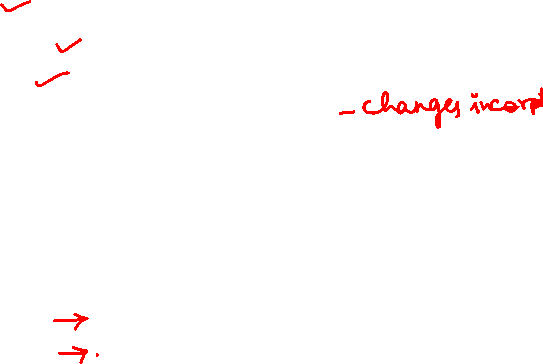 - changes incorp